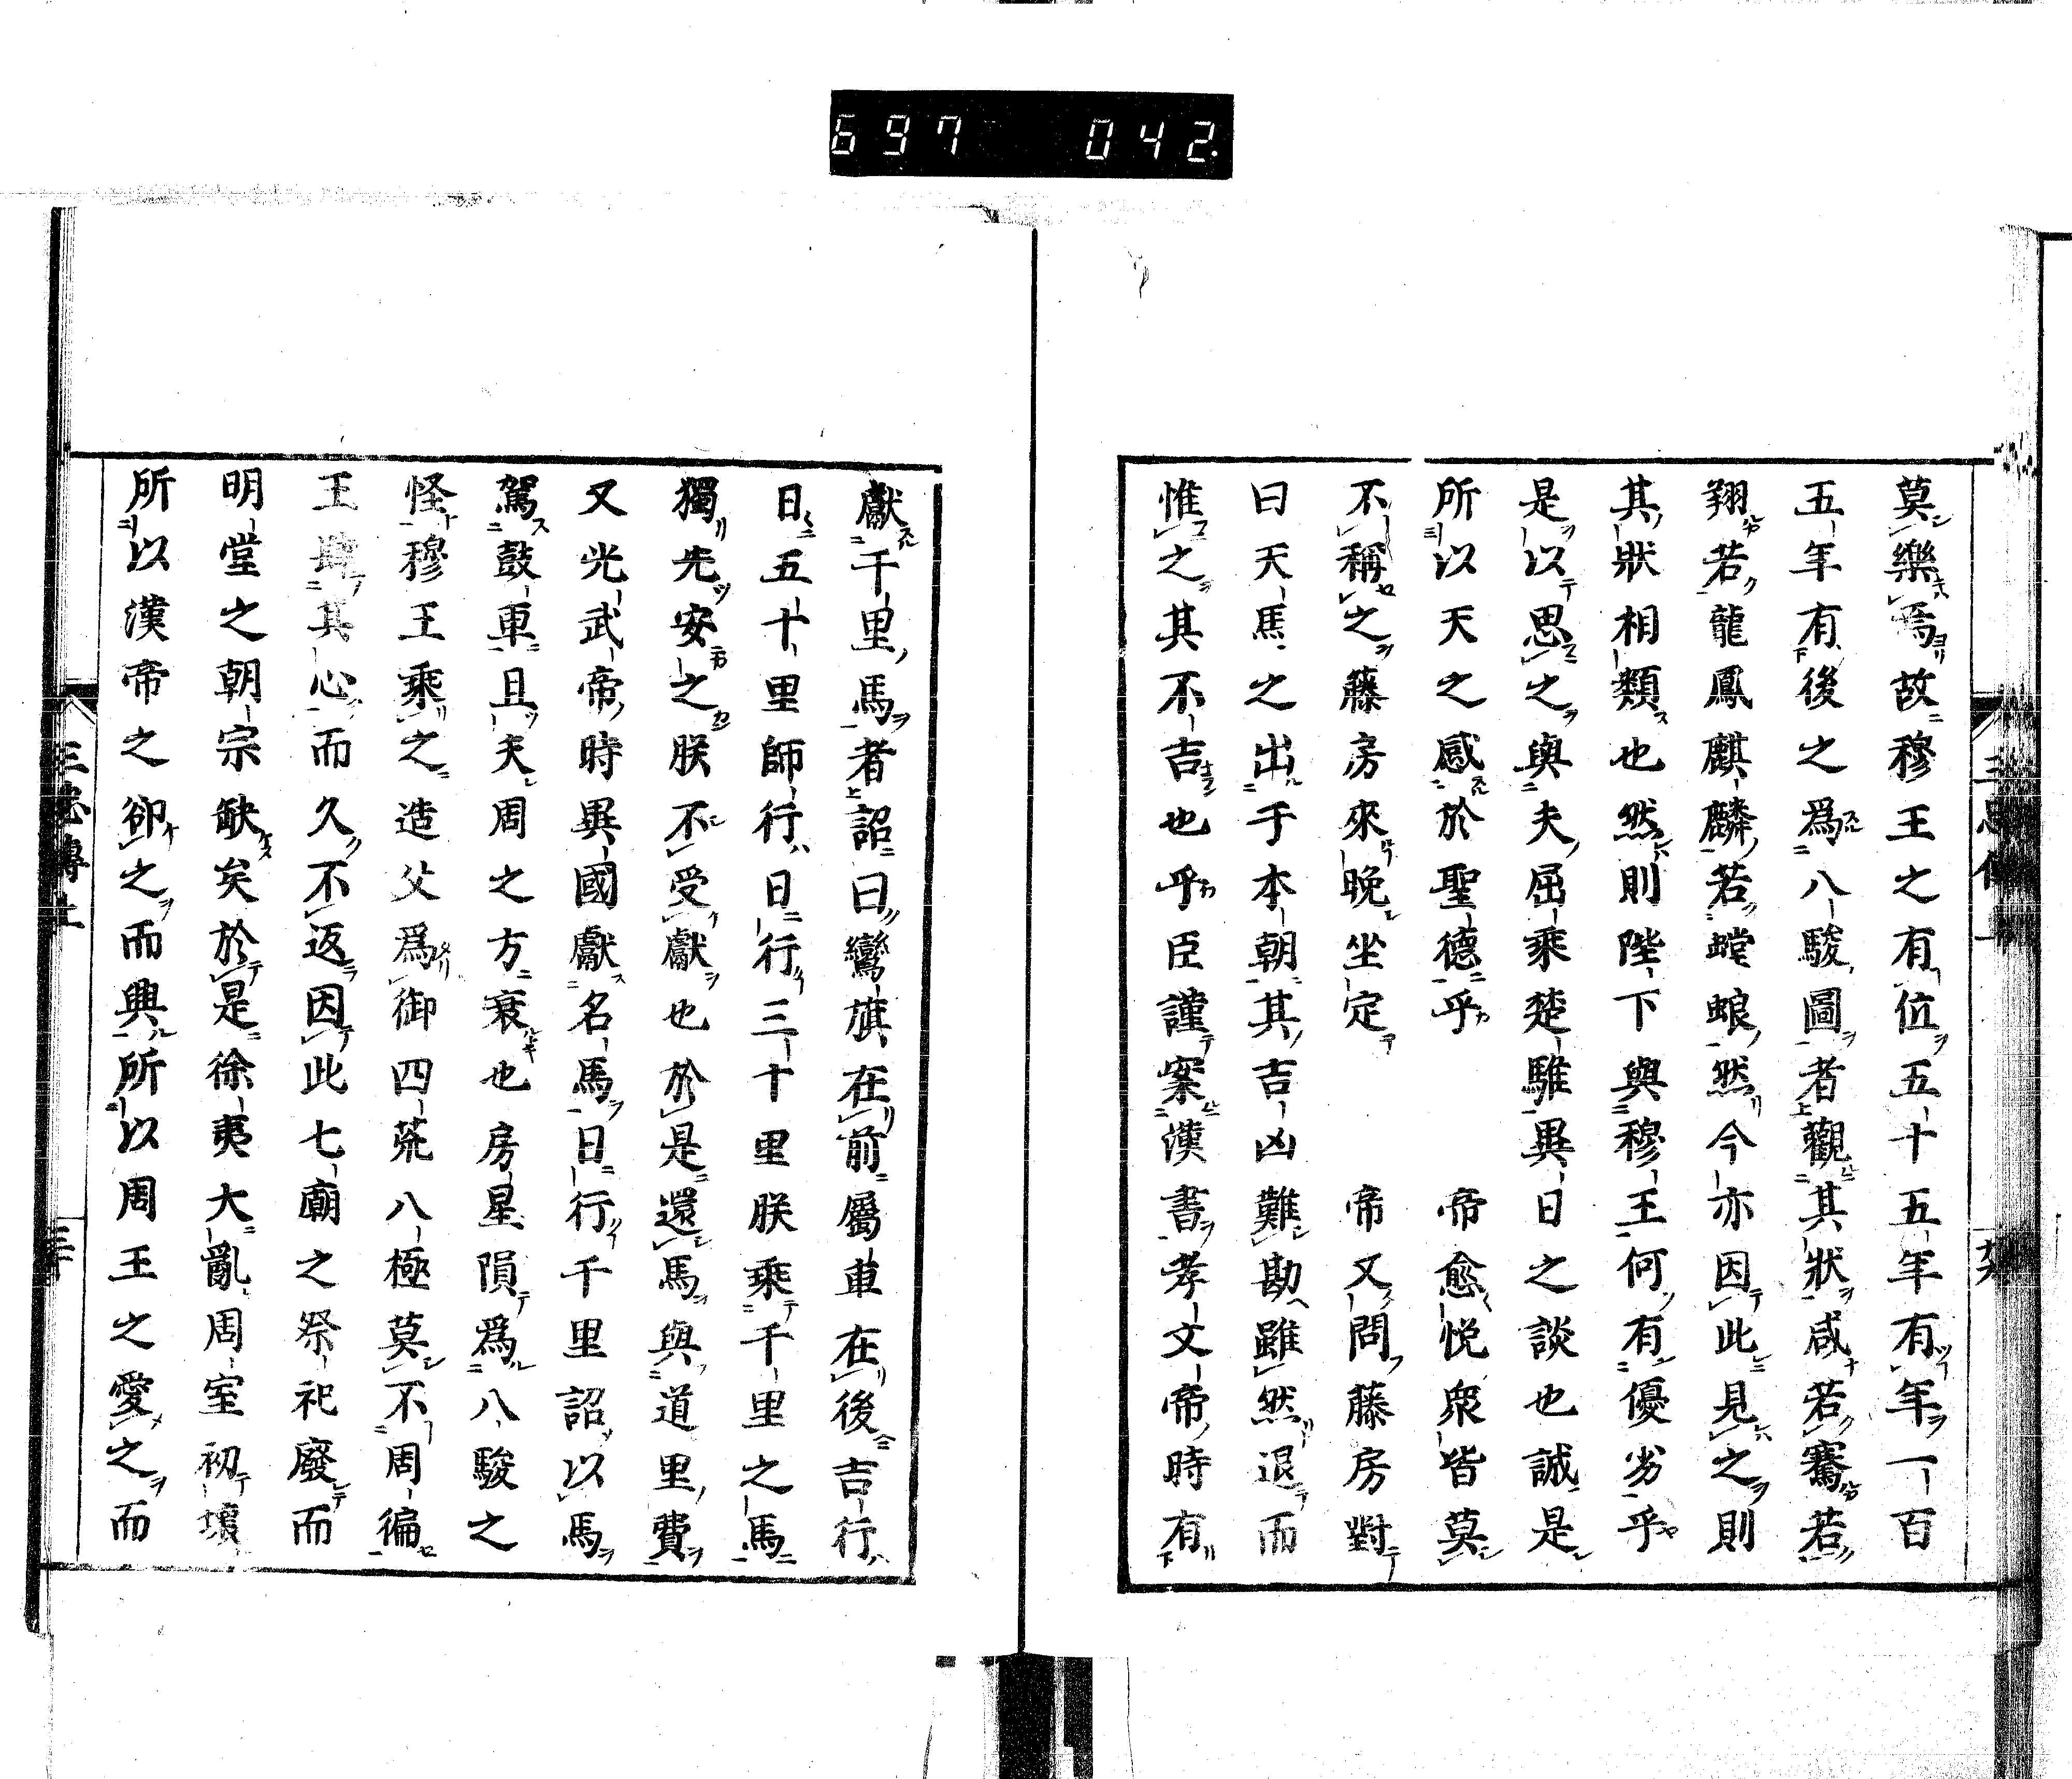 697 042
三忠傳上
莫樂焉故穆王之有位五十五年有年一百
五年有後之爲八駿圖者觀其狀咸若騫若
翔若龍鳳麒麟若螳蜋然今亦因此見之則
其狀相類也然則陛下與穆王何有優劣乎
是以思之與夫屈乘楚騅異日之談也誠是
所以天之感於聖德乎 帝愈悅衆皆莫
不稱之藤房來晚坐定 帝又問藤房對
曰天馬之出于本朝其吉凶難勘雖然退而
惟之其不吉也乎臣謹案漢書孝文帝時有
獻千里馬者詔曰鸞旗在前屬車在後吉行
日五十里師行日行三十里朕乘千里之馬
獨先安之朕不受獻也於是還馬與道里費
又光武帝時異國獻名馬日行千里詔以馬
駕鼓車且夫周之方衰也房星隕爲八駿之
怪穆王乘之造父爲御四荒八極莫不周徧
王肆其心而久不返因此七廟之祭祀廢而
明堂之朝宗缺矣於是徐夷大亂周室初壞
所以漢帝之卻之而興所以周王之愛之而
三忠傳上